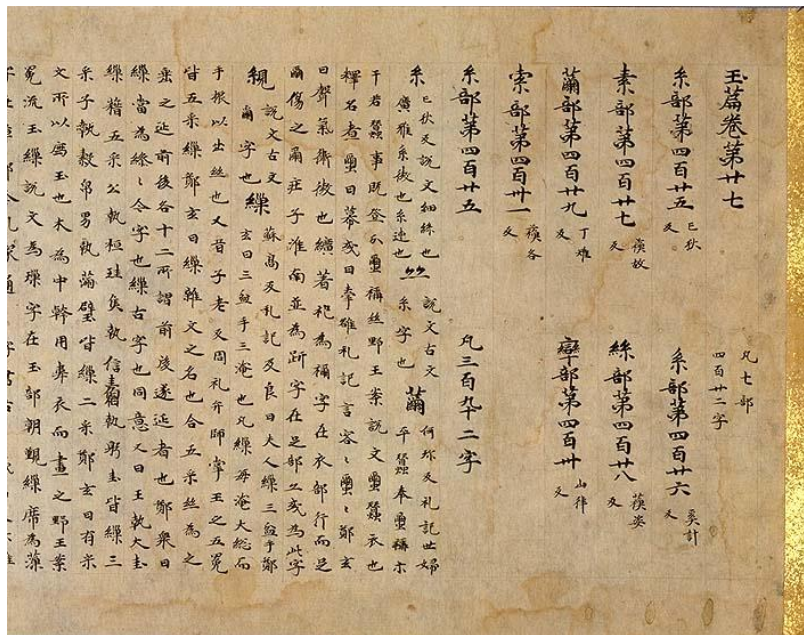 玉篇卷第廿七
凡七部
四百廿二字
糸部第四百廿五 亡狄反
系部第四百廿六 奚計反
素部第四百廿七 蘓故反
絲部第四百廿八 蘓姿反
黹部第四百廿九 丁雉反
率部第四百卅 山律反
索部第四百卅一 蘓各反
糸部第四百廿五 凡三百九十二字
糸 亡狄反說文細絲也
廣雅糸微也糸連也 𢆯 說文古文
糸字也 繭 何殄反礼記世婦
卒蠶奉繭稱尒
于君蠶事既登分繭稱絲野王案說文繭蠶衣也
釋名煮繭曰莫或曰牽離礼記言容〻繭〻鄭玄
曰聲氣微也纊著袍為襺字在衣部行而足
繭傷之繭莊子淮南並為趼字在足部亦或為此字
絸 說文古文
繭字也 繅 蘇高反礼記及良日夫人繅三盆手鄭
玄曰三盆手三淹也凡繅每淹大総而
手振以出絲也又音子老反周礼弁師掌王之五冕
皆五采繅鄭玄曰繅雜文之名也合五采絲為之
垂之延前後各十二所謂前後邃延者也鄭衆曰
繅當為繰〻今字也繅古字也同意又曰王執大圭
繅藉五采公執桓珪侯執信圭伯執躬圭皆繅三
采子執穀帛男執蒲璧皆繅二采鄭玄曰有采
文所以薦玉也木為中幹用韋衣而畫之野王案
冕流玉繅說文為璪字在玉部朝覲繅席為藻